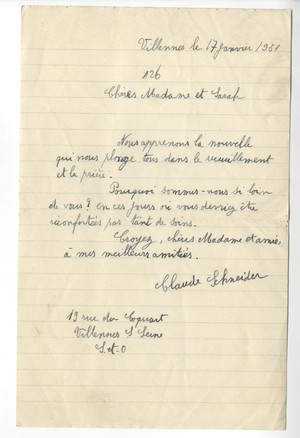 Villennes le 17 janvier 1961
126
Chères Madame et Sarah
Nous apprenons la nouvelle
qui nous plonge tous dans le recueillement
et la prière.
Pourquoi sommes-nous si loin
de vous? en ces jours où vous devriez être
réconfortées par tant de soins.
Croyez, chères Madame et amie,
à mes meilleurs amitiés.
Claude Schneider
19 rue du
Villennes S Seine
S.et.O